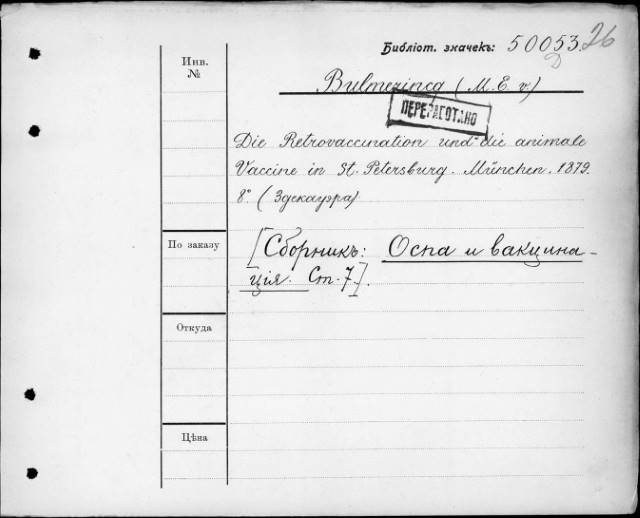 Библіот. значекъ: 50053. 26
D
Инв.
№
Bulmerincq (M. E. v.)
ПЕРЕРАБОТАНО
Die Retrovaccination und die animale
Vaccine in St. Petersburg. München. 1879.
8°. (Эдекауэра)
По заказу
[Сборникъ: Оспа и вакцина-
ція. Ст. 7.].
Откуда
Цѣна